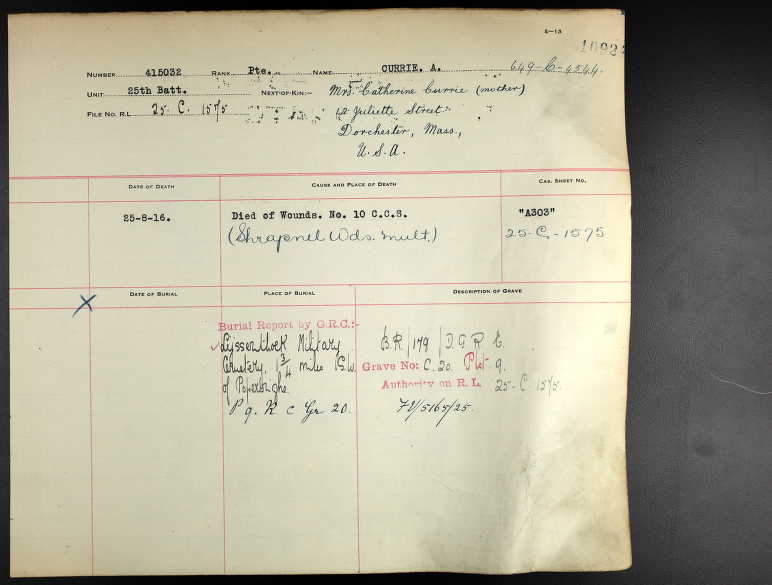 6-13
NUMBER 415032 RANK Pte. NAME CURRIE. A. 649-C-4544.
UNIT 25th Batt. NEXT-OF-KIN:- Mrs. Catherine Currie (mother)
FILE NO. R.L. 25. C. 1575 42 Juliette Street
Dorchester, Mass.,
U.S.A.
DATE OF DEATH CAUSE AND PLACE OF DEATH CAS. SHEET NO.
25-8-16. Died of Wounds. No. 10 C.C.S. "A303"
(Shrapnel Wds. mult.) 25-C-1575
DATE OF BURIAL PLACE OF BURIAL DESCRIPTION OF GRAVE
Burial Report by G.R.C.:-
Lijssenthoek Military B.R/179/D.G.R.E.
Cemetery, 1 3/4 miles S.W. Grave No: C. 20. Plot 9.
of Poperinghe. Authority on R.L. 25-C 1575.
P 9. R C Gr 20. 7V/5165/25.